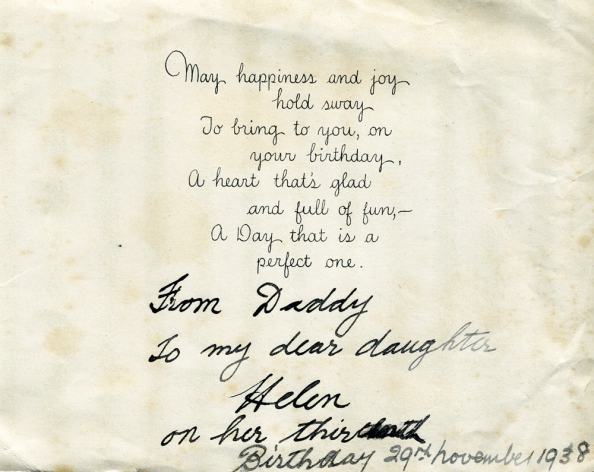 May happiness and joy
hold sway
To bring to you, on
your birthday,
A heart that's glad
and full of fun,—
A Day that is a
perfect one.
From Daddy
To my dear daughter
Helen
on her
Birthday 29th november 1938